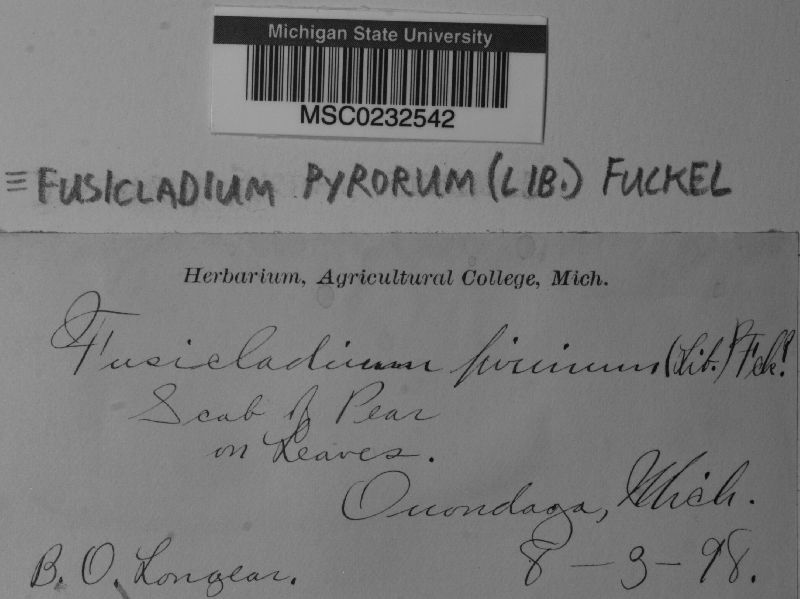 Michigan State University
MSC0232542
≡ FUSICLADIUM PYRORUM (LIB.) FUCKEL
Herbarium, Agricultural College, Mich.
Fusicladium pirinum (Lib.) Fck!
Scab of Pear
on Leaves.
Onondaga, Mich.
B. O. Longyear. 8-3-98.